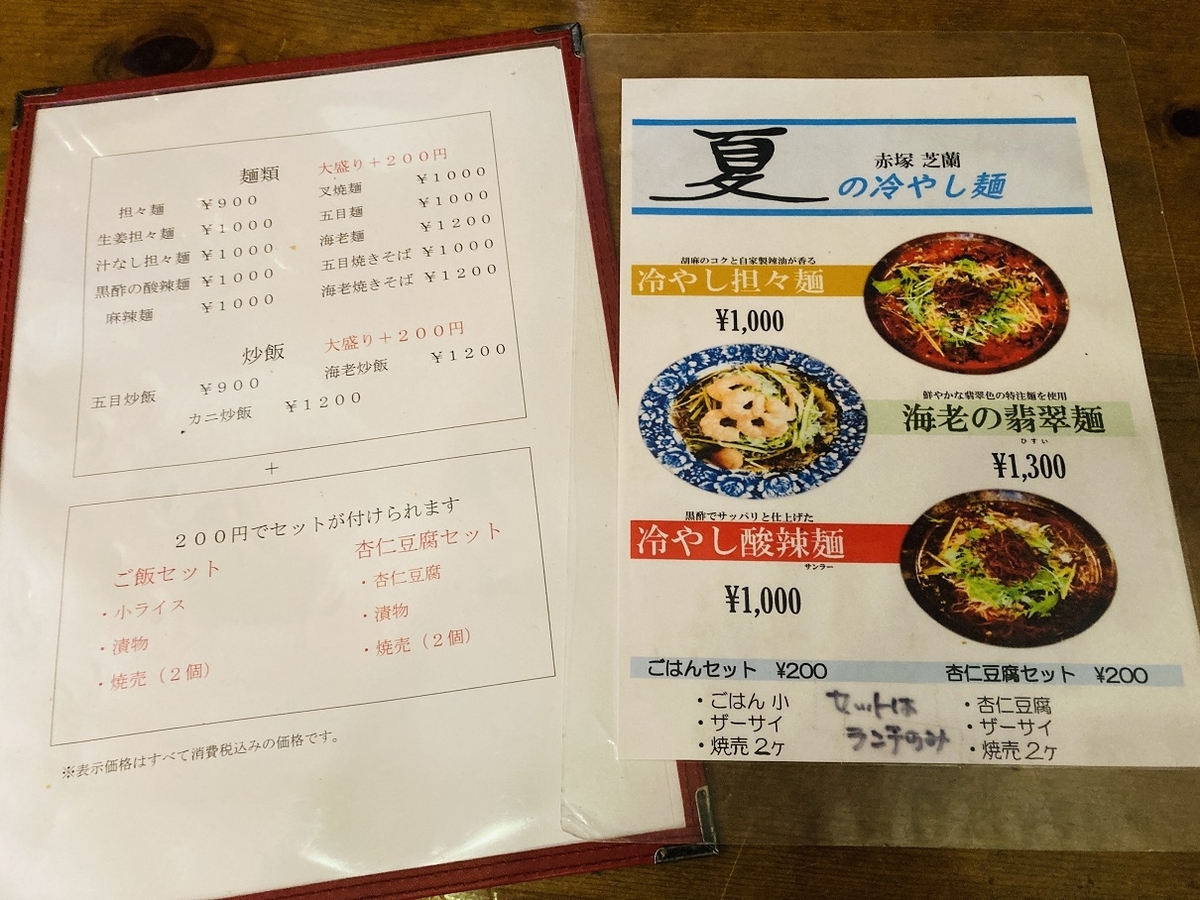 麺類 大盛り＋２００円
担々麺 ￥９００
生姜担々麺 ￥１０００
汁なし担々麺 ￥１０００
黒酢の酸辣麺 ￥１０００
麻辣麺 ￥１０００
叉焼麺 ￥１０００
五目麺 ￥１０００
海老麺 ￥１２００
五目焼きそば ￥１０００
海老焼きそば ￥１２００
炒飯 大盛り＋２００円
五目炒飯 ￥９００
海老炒飯 ￥１２００
カニ炒飯 ￥１２００
＋
２００円でセットが付けられます
ご飯セット
・小ライス
・漬物
・焼売（２個）
杏仁豆腐セット
・杏仁豆腐
・漬物
・焼売（２個）
※表示価格はすべて消費税込みの価格です。
夏 赤塚 芝蘭
の冷やし麺
胡麻のコクと自家製辣油が香る
冷やし担々麺
¥1,000
鮮やかな翡翠色の特注麺を使用
海老の翡翠麺
ひすい
¥1,300
黒酢でサッパリと仕上げた
冷やし酸辣麺
サンラー
¥1,000
ごはんセット ¥200
・ごはん 小
・ザーサイ
・焼売２ケ
セットは
ランチのみ
杏仁豆腐セット ¥200
・杏仁豆腐
・ザーサイ
・焼売２ケ